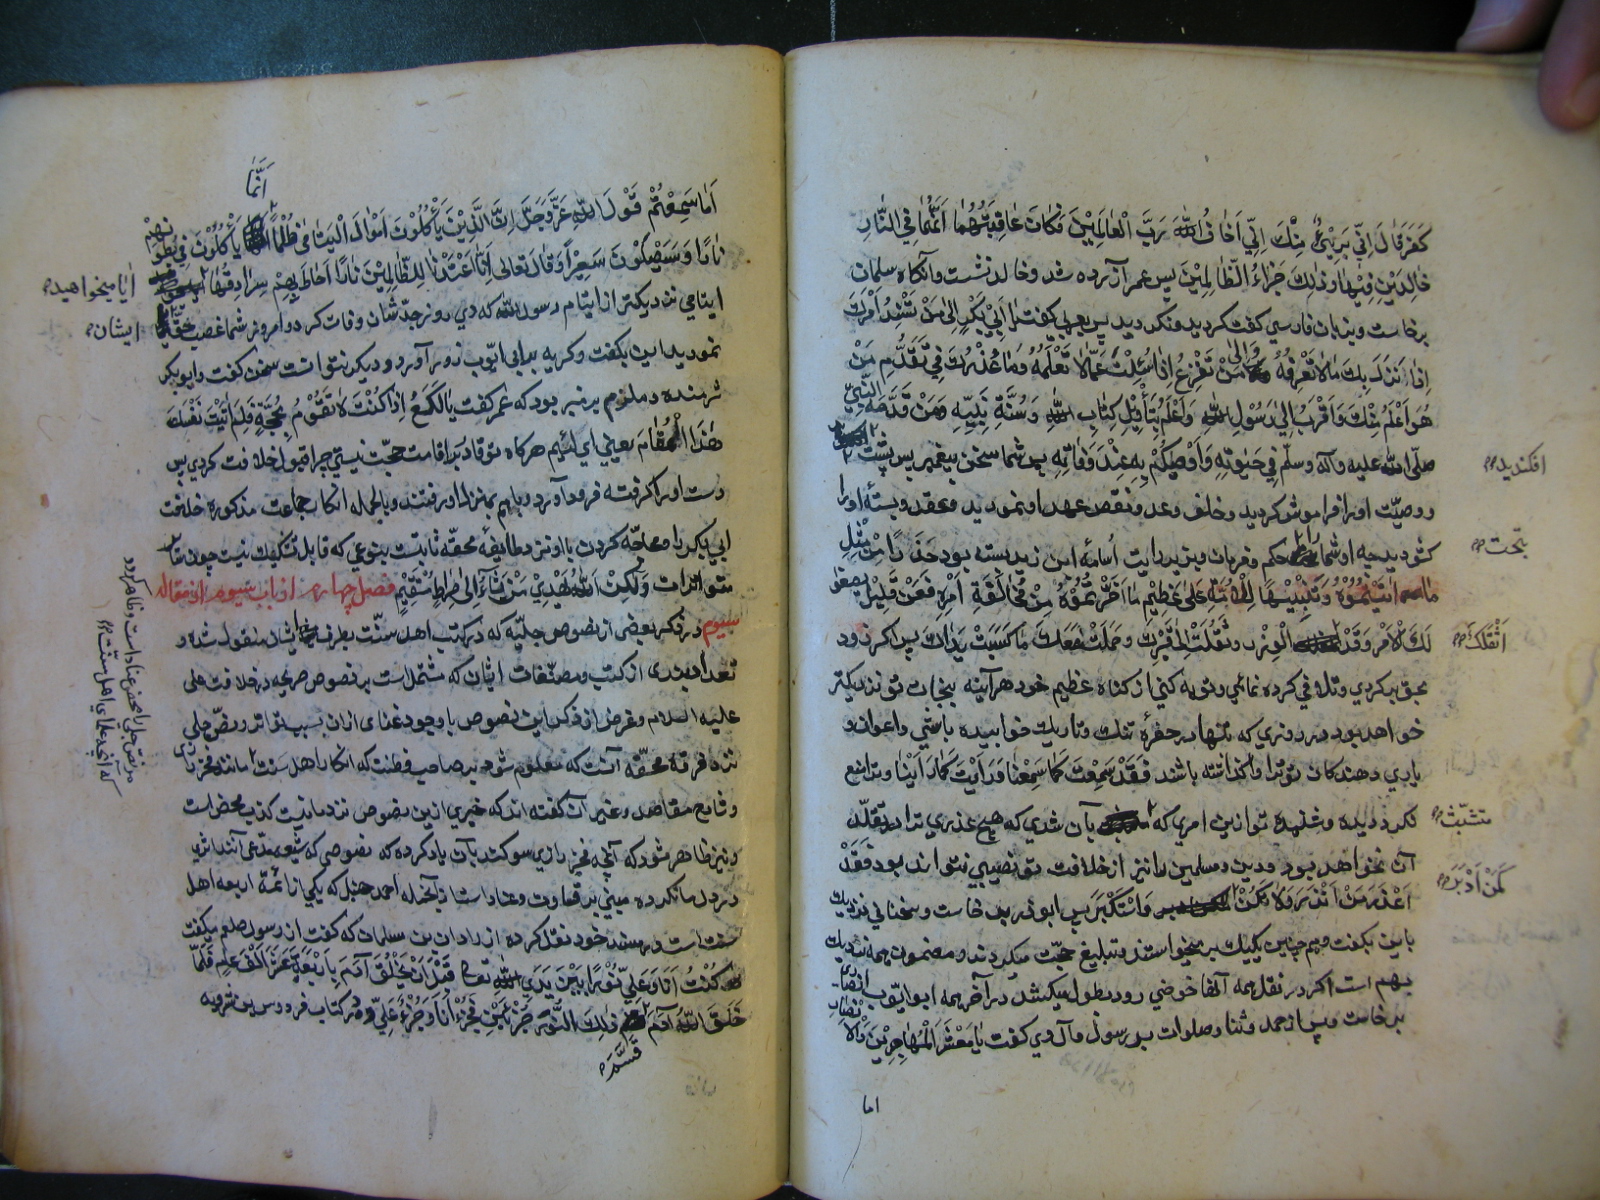 كَفَرَ قَالَ اِنّي بَرِيْئٌ مِنْكَ اِنّي اَخَافُ اللهَ رَبَّ الْعَالَمِيْنَ فَكَانَ عَاقِبَتُهُمَا اَنَّهُمَا فِي النَّارِ
خَالِدَيْنِ فِيْهَا وَذلِكَ جَزَاءُ الظَّالِمِيْنَ پس عمر آزرده شد وخالد نشست وآنكاه سلمان
برخاست وبزبان فارسي كفت كرديد ونكرديد پس بعربي كفت يَا اَبي بَكْرٍ اِلىٰ مَنْ تُسْنِدُ اَمْرَكَ
اِذَا نَزَلَ بِكَ مَا لَا تَعْرِفُهُ وَاِلىٰ مَنْ تَفْزَعُ اِذَا سُئِلْتَ عَمَّا لَا تَعْلَمُهُ وَمَا عُذْرُكَ فِي تَقَدُّمِ مَنْ
هُوَ اَعْلَمُ مِنْكَ وَاَقْرَبُ اِلىٰ رَسُولِ اللهِ وَاَعْلَمُ بِتَأْوِيْلِ كِتَابِ اللهِ وَسُنَّةِ نَبِيِّهِ وَمَنْ قَدَّمَهُ النَّبِيُّ
صلّى الله عليه وآله وسلّم فِي حَيٰوتِهِ وَاَوْصٰيكُمْ بِهِ عِنْدَ وَفَاتِهِ پس شما سخن پيغمبر پس پشت
افكنديد
ووصيّت اورا فراموش كرديد وخلف وعد ونقص عهد او نموديد وعقد وبستهٔ اورا
كشوديد چه او شما را حكم وفرمان وبزير رايت اُسامه ابن زيد بسته بود حَذَرًا مِنْ مِثْلِ
بتحت
مَا اَتَيْتُمُوْهُ وَتَنْبِيْهًا لِلْاُمَّةِ عَلىٰ عَظِيْمِ مَا اجْتَرَمْتُمُوْهُ مِنْ مُخَالَفَةِ اَمْرِهِ فَعَنْ قَلِيْلٍ يَصْفُوْ
لَكَ الْاَمْرُ وَقَدْ الْوِزْرُ وَنُقِلْتَ اِلىٰ قَبْرِكَ وَحَمَلْتَ مَعَكَ مَا كَسَبَتْ يَدَاكَ پس اكر زود
اَثْقَلَكَ
بحق بركردي وتلافي كرده نمائي وتوبه كني از كناه عظيم خود هرآينه بنجات تو نزديكتر
خواهد بود در روزي كه تنها در حفرهٔ تنك وتاريك خوابيده باشي واعوان و
ياري دهندكان تو ترا واكذاشته باشند فَقَدْ سَمِعْتَ كَمَا سَمِعْنَا وَرَاَيْتَ كَمَا رَاَيْنَا وترا منع
نكرد ديده وشنيده تو ازين امري كه بآن شدي كه هيچ عذري ترا در تقلّد
متشبّث
آن نخواهد بود ودين ومسلمين را نيز از خلافت تو نصيبي نتواند بود فَقَدْ
اَعْذَرَ مَنْ اَنْذَرَ وَلَا تَكُنْ وَاسْتَكْبَرَ پس ابو ذر برخاست وسخناني نزديك
كَمَنْ اَدْبَرَ
باين بكفت وهم چنين يكيك برميخواستند وتبليغ حجّت ميكردند ومضمون همه نزديك
بهم است اكر در نقل همه آنها خوضي رود بطول ميكشد در آخر همه ابو ايّوب انصاري
برخاست وپس از حمد وثنا وصلوات بر رسول وآل وي كفت يَا مَعْشَرَ الْمُهَاجِرِيْنَ وَالْاَنْصَارِ
اما
اَنَّمَا
اَمَا سَمِعْتُمْ قَوْلَ اللهِ عَزَّ وَجَلَّ اِنَّ الَّذِيْنَ يَأْكُلُوْنَ اَمْوَالَ الْيَتَامٰى ظُلْمًا يَأْكُلُوْنَ فِي بُطُوْنِهِمْ
نَارًا وَسَيَصْلَوْنَ سَعِيْرًا وَقَالَ تعالى اِنَّا اَعْتَدْنَا لِلظَّالِمِيْنَ نَارًا اَحَاطَ بِهِمْ سُرَادِقُهَا
ايا ميخواهيد
ايتامي نزديكتر از ايتام رسول الله كه دي روز جدّشان وفات كرد وامروز شما غصب حق
ايشان
نموديد اين بكفت وكريه بر ابي ايّوب زور آورد وديكر نتوانست سخن كفت وابو بكر
شرمنده وملزم بر منبر بود كه عمر كفت يَا لُكَعُ اِذَا كُنْتَ لَا تَقُوْمُ بِحُجَّةٍ فَلِمَ اَقَمْتَ نَفْسَكَ
هٰذَا الْمُقَامَ يعني اي لئيم هركاه تو قادر بر اقامت حجّت نيستي چرا قبول خلافت كردي پس
دست اورا كرفته فرود آورد وباهم بمنزلها رفتند وبالجمله انكار جماعت مذكوره خلافت
ابي بكر را ومحاجّه كردن با او نزد طايفهٔ محقّه ثابتست بنوعي كه قابل تشكيك نيست چون
متواترات وَلٰكِنَّ اللهَ يَهْدِيْ مَنْ يَشَاءُ اِلىٰ صِرَاطٍ مُسْتَقِيْمٍ فصل چهارم از باب سيوم از مقاله
سيوم در ذكر بعضي از نصوص جليّه كه در كتب اهل سنّت بطرف ايشان منقول شده و
تعداد چندي از كتب ومصنّفات ايشان كه مشتمل است بر نصوص صريحه در خلافت علي
عليه السلام وغرض از ذكر اين نصوص با وجود غناي از ان بسبب تواتر ونصّ جلي
نزد فرقهٔ محقّه آنست كه معلوم شود بر صاحب فطنت كه انكار اهل سنّت مانند فخر رازي
وشارح مقاصد وغير آن كفته اند كه خبري ازين نصوص نزد ما نيست كذب محض است
ونيز ظاهر شود كه آنچه فخر رازي سوكند بآن ياد كرده كه نصوصي كه شيعه مدّعي آنند اثري
در دل ما نكرده مبني بر قساوت وعناد است از آنجمله احمد حنبل كه يكي از ائمّهٔ اربعه اهل
سنّت است در مسند خود نقل كرده از زادان بن سلمان كه كفت از رسول صلعم ميكفت
كُنْتُ اَنَا وَعَلِيٌّ نُوْرًا بَيْنَ يَدَيِ اللهِ تعالى قَبْلَ اَنْ يَخْلُقَ اٰدَمَ بِاَرْبَعَةَ عَشَرَ اَلْفَ عَامٍ فَلَمَّا
خَلَقَ اللهُ اٰدَمَ ذٰلِكَ النُّوْرَ جُزْئَيْنِ فَجُزْءٌ اَنَا وَجُزْءٌ عَلِيٌّ ودر كتاب فردوس بن شرويه
قَسَّمَ
كه آنچه علماي اهل سنّت